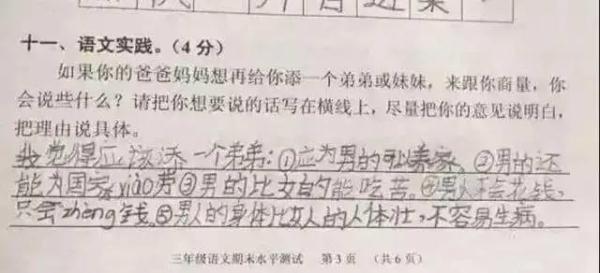 十一、语文实践。(4分)
如果你的爸爸妈妈想再给你添一个弟弟或妹妹，来跟你商量，你
会说些什么？请把你想要说的话写在横线上，尽量把你的意见说明白，
把理由说具体。
我觉得应该添一个弟弟：①应为男的可以养家。②男的还
能为国家xiào劳③男的比女的能吃苦。④男人不会花钱，
只会zhèng钱。⑤男人的身体比女人的人体壮，不容易生病。
三年级语文期末水平测试 第3页 (共6页)